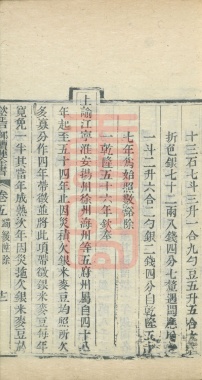 十三石七斗三升一合九勺豆五升五合
折色銀七十二兩入錢四分七釐遇閏
一斗二升六合二勺銀二錢四分自乾隆五十
七年為始照數豁除
一乾隆五十六年欽奉
上諭江寧淮安揚州徐州海州等五府州屬自四十
年起至五十四年止因災積欠銀米麥豆均照所欠
多寡分作四年帶徵並將此項帶徵銀米麥豆每年
寬免一半其當年成熟次年因災遞欠銀米麥豆均
卷五 蠲緩豁除